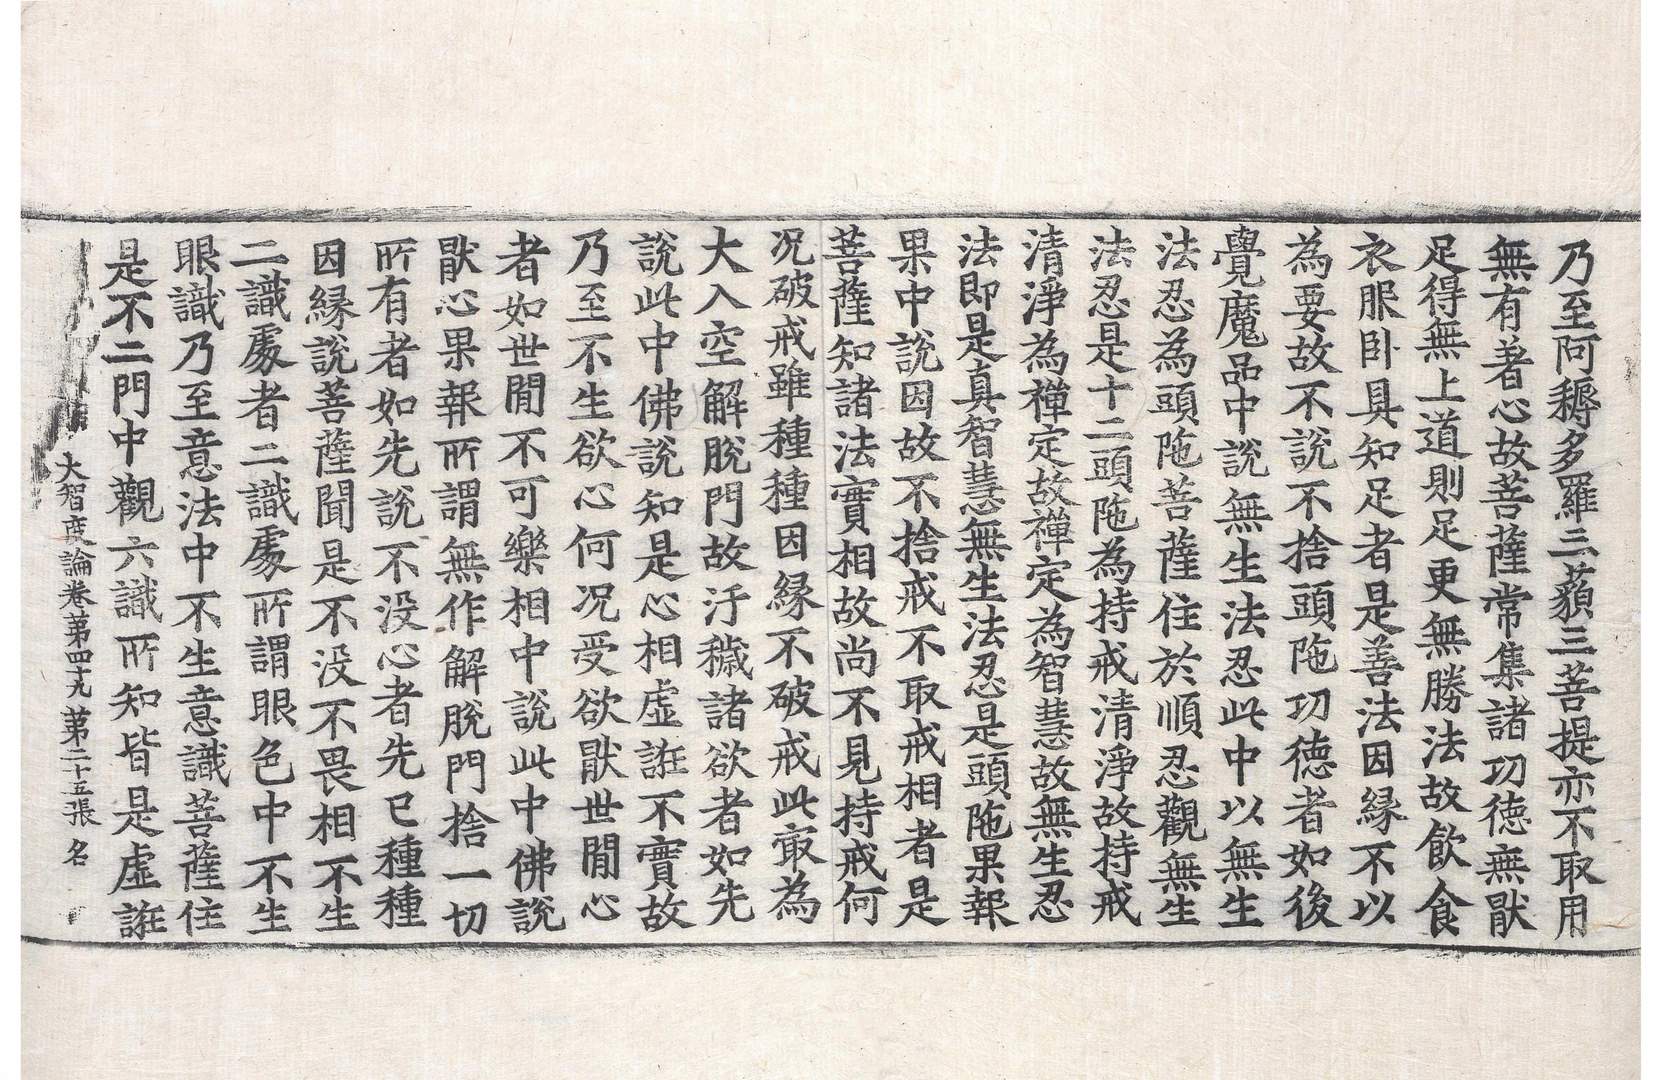 乃至阿耨多羅三藐三菩提亦不取用
無有著心故菩薩常集諸功德無猒
足得無上道則足更無勝法故飲食
衣服卧具知足者是善法因緣不以
為要故不說不捨頭陁功德者如後
覺魔品中說無生法忍此中以無生
法忍為頭陁菩薩住於順忍觀無生
法忍是十二頭陁為持戒清淨故持戒
清淨為禪定故禪定為智慧故無生忍
法即是真智慧無生法忍是頭陁果報
果中說因故不捨戒不取戒相者是
菩薩知諸法實相故尚不見持戒何
况破戒雖種種因緣不破戒此㝡為
大入空解脫門故汙穢諸欲者如先
說此中佛說知是心相虛誑不實故
乃至不生欲心何况受欲猒世閒心
者如世閒不可樂相中說此中佛說
猒心果報所謂無作解脫門捨一切
所有者如先說不没心者先已種種
因緣說菩薩聞是不没不畏相不生
二識處者二識處所謂眼色中不生
眼識乃至意法中不生意識菩薩住
是不二門中觀六識所知皆是虛誑
大智度論卷第四十九 第二十五張 名